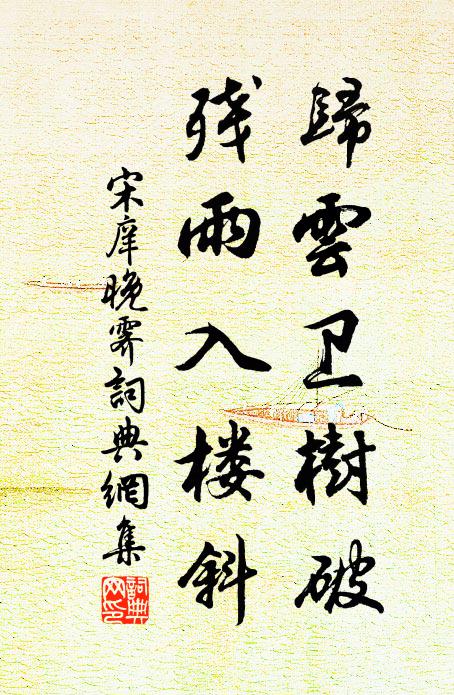 歸雲卫樹破
残雨入楼斜
宋庠晚霽詞典網集
詞典网印